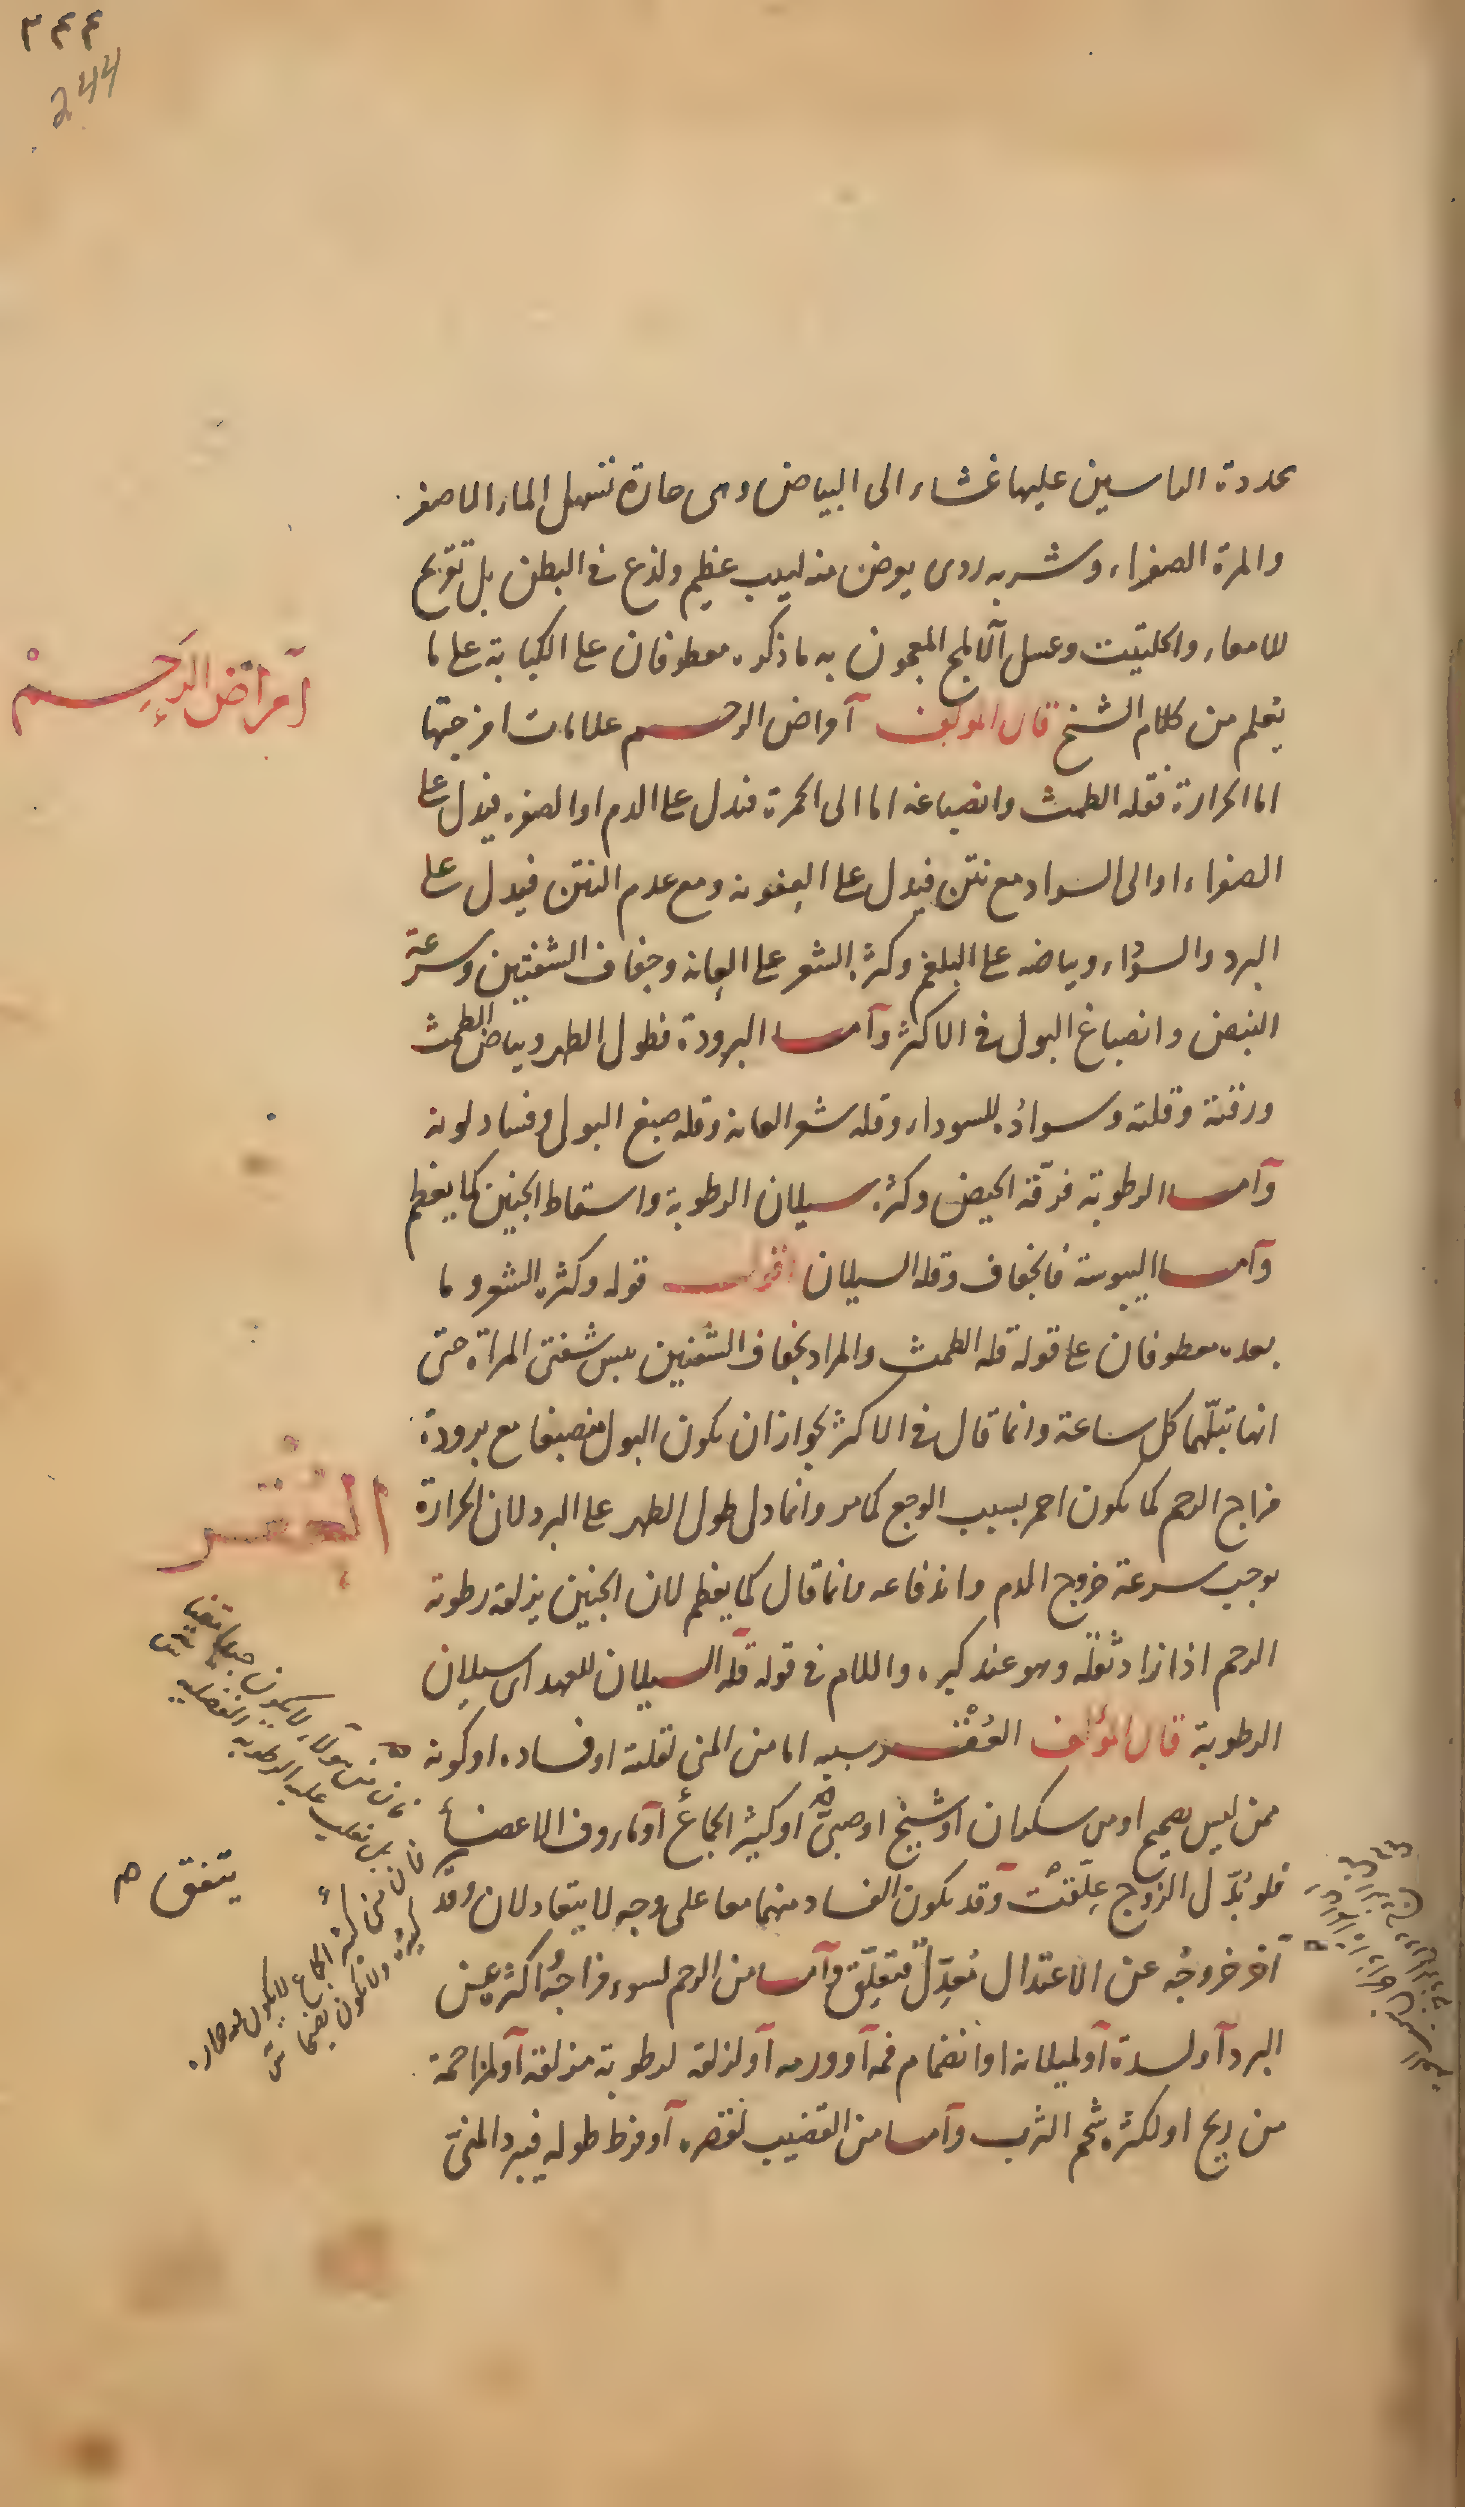 ٢٤٤
244
محددة الراسين عليها غشاء الى البياض وهى حارة تسهل الماء الاصفر
والمرة الصفراء وشربه ردى يعرض منه لهيب عظيم ولذع فى البطن بل تقريح
للامعاء والحلتيت وعسل الاملج المعجون به ما ذكره معطوفان على الكبابة على ما
يعلم من كلام الشيخ قال المؤلف امراض الرحم علامات امزجتها
امراض الرحم
اما الحرارة فقلة الطمث وانصباغه اما الى الحمرة فتدل على الدم او الصفرة فيدل على
الصفراء او الى السواد مع نتن فيدل على العفونة ومع عدم النتن فيدل على
البرد والسوداء وبياضه على البلغم وكثرة الشعر على العانة وجفاف الشفتين وسرعة
النبض وانصباغ البول فى الاكثر واما البرودة فطول الطهر وبياض الطمث
ورقته وقلته وسواده للسوداء وقلة شعر العانة وقلة صبغ البول وفساد لونه
واما الرطوبة فرقة الحيض وكثرة سيلان الرطوبة واسقاط الجنين كما يعظم
واما اليبوسة فالجفاف وقلة السيلان اقول قوله وكثرة الشعر وما
بعده معطوفان على قوله قلة الطمث والمراد بجفاف الشفتين يبس شفتى المراة حتى
انها تبلهما كل ساعة وانما قال فى الاكثر لجواز ان يكون البول منصبغا مع برودة
مزاج الرحم كما يكون احمر بسبب الوجع كما مر وانما دل طول الطهر على البرد لان الحرارة
العُقر
يوجب سرعة خروج الدم واندفاعه وانما قال كما يعظم لان الجنين يزلقه رطوبة
الرحم اذا زاد ثقله وهو عند كبره واللام فى قوله قلة السيلان للعهد اى سيلان
الرطوبة قال المؤلف العُقْر سببه اما من المنى لقلته او فساده او كونه
ممن ليس بصحيح او من سكران او شيخ او صبىّ او كثير الجماع او مأروف الاعضاء
فلو بُدّل الزوج عِلقَتْ وقد يكون الفساد منهما معا على وجه لا يتعادلان وقد
يتفق
آخر خروجُه عن الاعتدال مُعدِّلٌ فتعلِّق واما من الرحم لسوء مزاجُه اكثره عن
البرد او لسدة او لميلانه او انضمام فمه او ورمه او لزلقه لرطوبة مزلقة او لمزاحمة
من ريح او لكثرة شحم الثرب واما من القضيب لقصره او فرط طوله فيبرد المنىّ